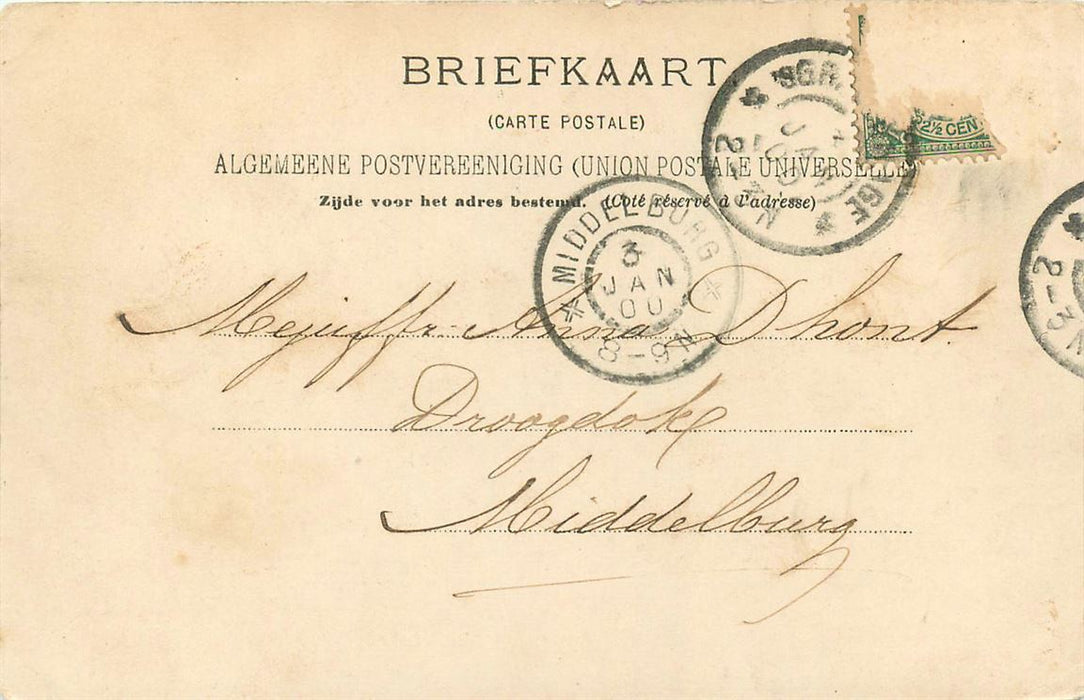 BRIEFKAART
(CARTE POSTALE)
ALGEMEENE POSTVEREENIGING (UNION POSTALE UNIVERSELLE)
Zijde voor het adres bestemd. (Coté réservé à l'adresse)
2½ CEN
'SGR AGE
JAN
2-3 N
MIDDELBURG
3
JAN
00
8-9V
2-3 N
Mejuffr. Anna Dhont.
Droogdok
Middelburg